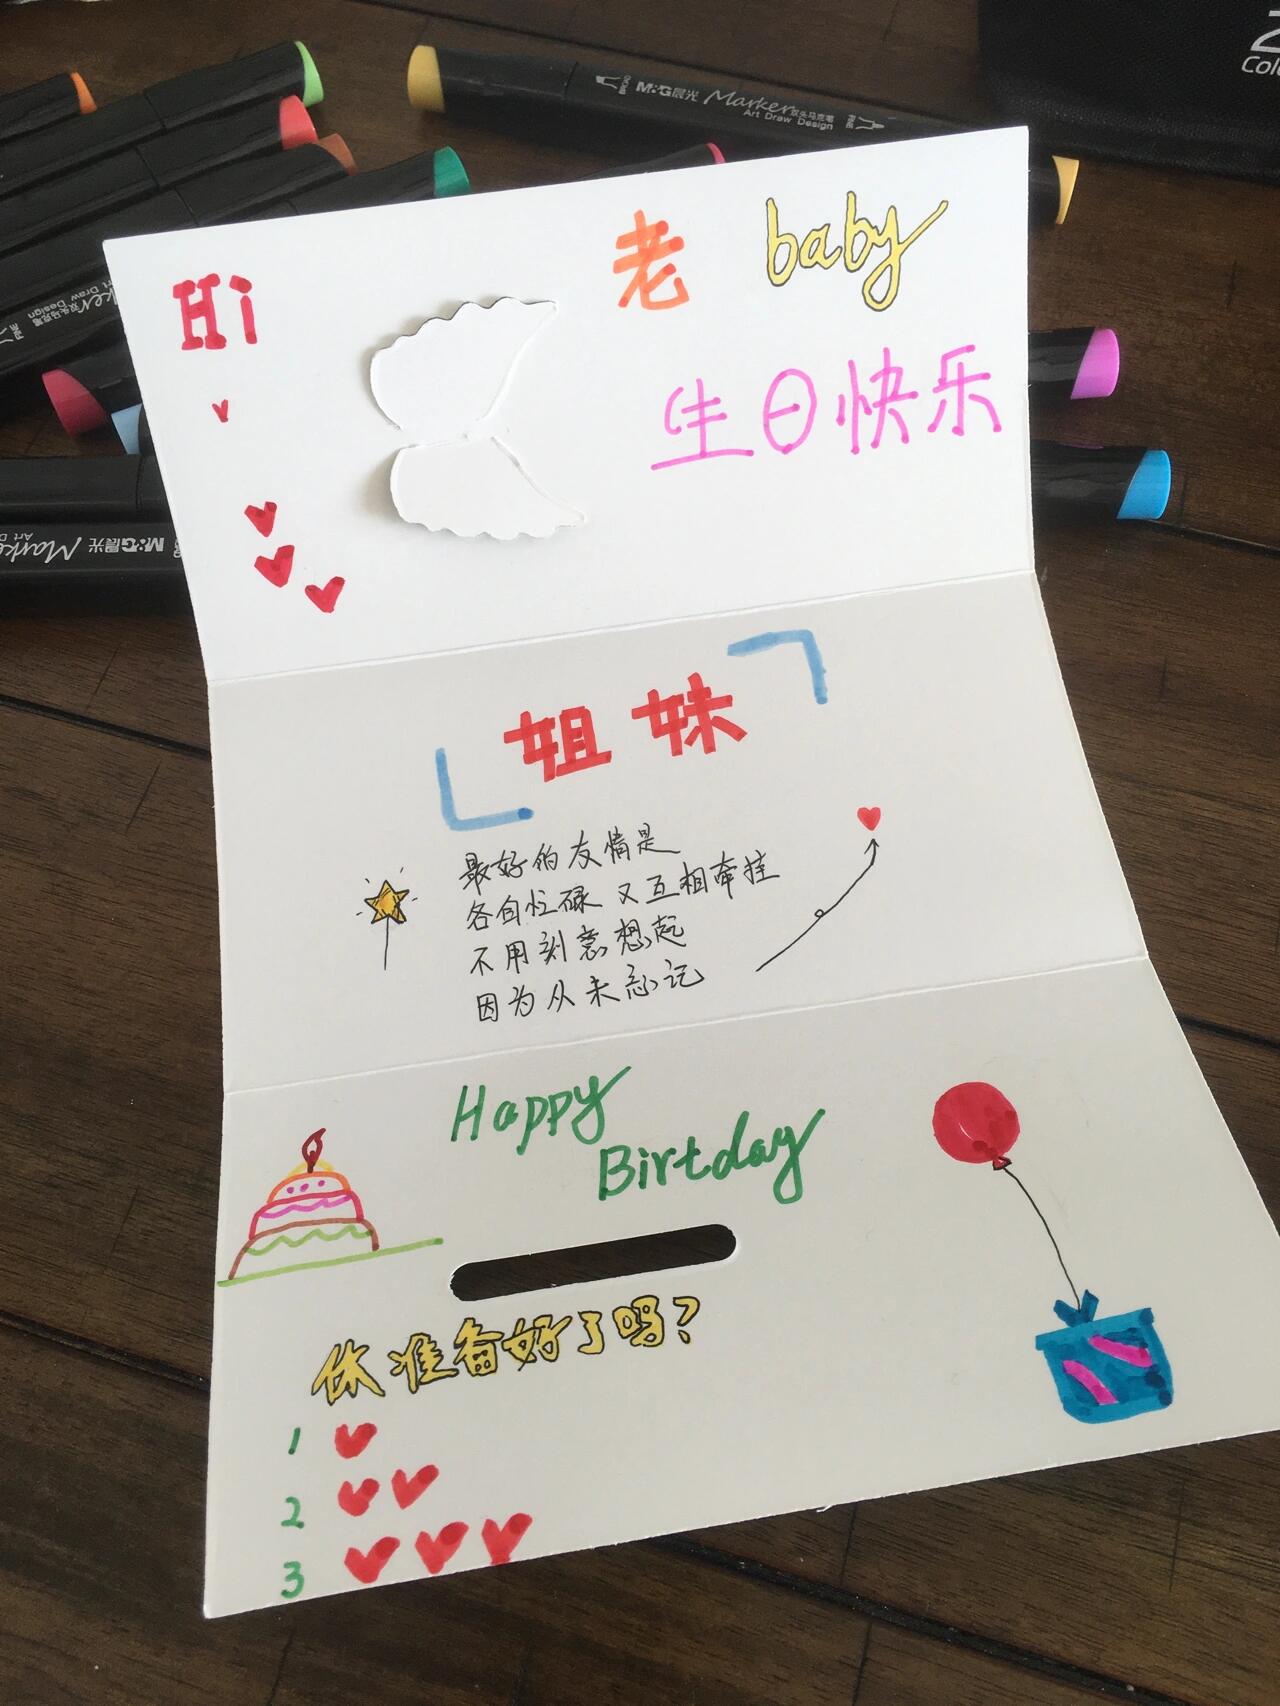 2
Colo
BROAD M&G晨光 Marker 双头马克笔 FINE
Art Draw Design
Hi
老 baby
生日快乐
姐妹
最好的友情是
各自忙碌 又互相牵挂
不用刻意想起
因为从未忘记
Happy
Birtday
你准备好了吗?
1
2
3
rker 双头马克笔
Art Draw Design
M&G晨光 Marke
Art D